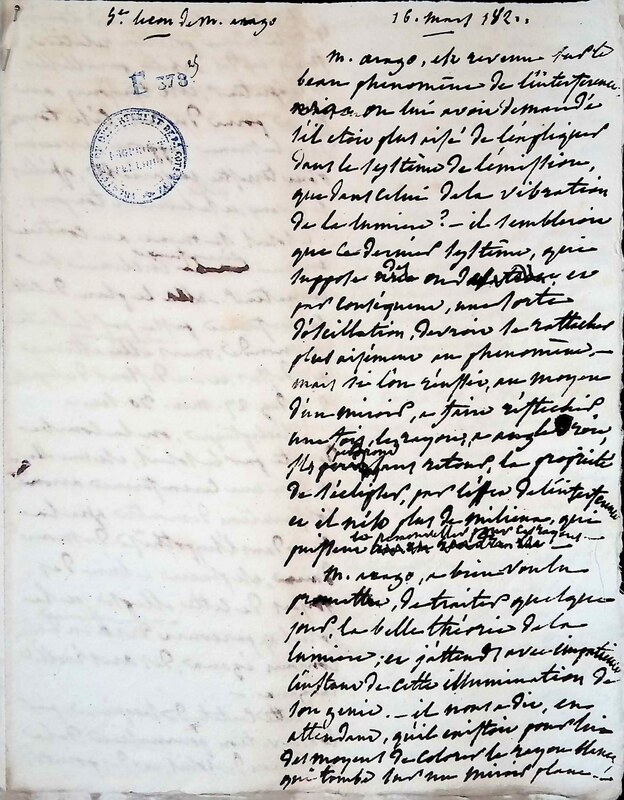 5e lecon de m. arago
16. mars 182
E 378
m. arago, est revenu sur le
beau phénomène de l'interférence
on lui avoit demandé
s'il etoit plus aisé de l'expliquer
dans le système de l'émission,
que dans celui de la vibration
de la lumiere? - il sembleroit
que ce dernier système, qui
suppose des ondes et
par conséquent, une sorte
d'oscillation, devroit se rattacher
plus aisément au phenomène. -
mais si l'on réussit, au moyen
d'un miroir, a faire réfléchir
une fois, les rayons, a angle droit
ils perdront sans retour, la propriété
de s'éclipser, par l'effet de l'interférence
et il n'est plus de milieux, qui
puissent la renouveller pour ces rayons. -
m. arago, a bien voulu
promettre, de traiter quelque
jour, la belle théorie de la
lumiere, et j'attends avec impatience
l'instant de cette illumination de
son genie. - il nous a dit, en
attendant, qu'il existoit pour lui
des moyens de colorer le rayon blanc
qui tombe sur un miroir plane. -